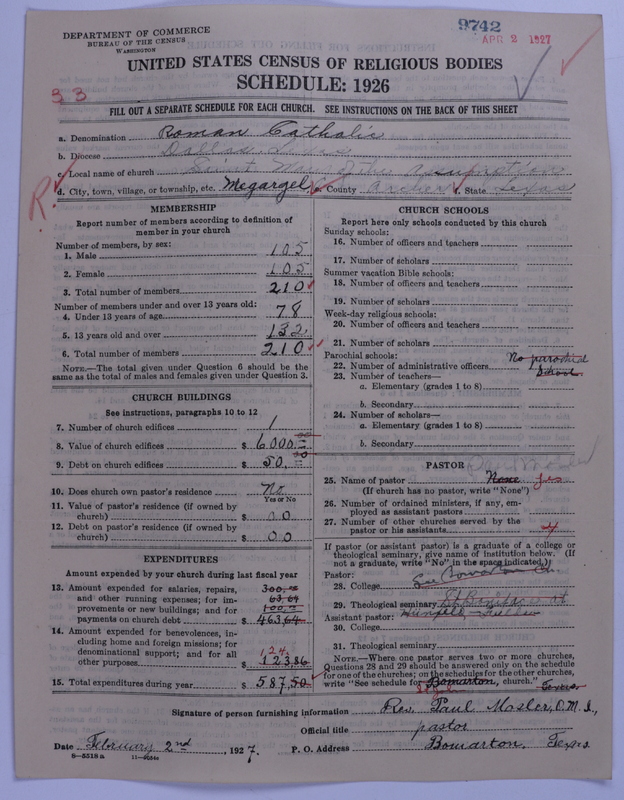 DEPARTMENT OF COMMERCE
BUREAU OF THE CENSUS
WASHINGTON
9742
APR 2 1927
UNITED STATES CENSUS OF RELIGIOUS BODIES
SCHEDULE: 1926
33
FILL OUT A SEPARATE SCHEDULE FOR EACH CHURCH. SEE INSTRUCTIONS ON THE BACK OF THIS SHEET
a. Denomination Roman Catholic
b. Diocese Dallas, Texas
c. Local name of church Saint Mary of the Assumption
d. City, town, village, or township, etc. Megargel e. County Archer f. State Texas
R.
MEMBERSHIP
Report number of members according to definition of member in your church
Number of members, by sex:
1. Male 105
2. Female 105
3. Total number of members 210
Number of members under and over 13 years old:
4. Under 13 years of age 78
5. 13 years old and over 132
6. Total number of members 210
NOTE.—The total given under Question 6 should be
same as the total of males and females given under Question 3.
CHURCH BUILDINGS
See instructions, paragraphs 10 to 12
7. Number of church edifices 1
8. Value of church edifices $ 6000.00
9. Debt on church edifices $ 50.00
10. Does church own pastor's residence No
Yes or No
11. Value of pastor's residence (if owned by
church) $ 00
12. Debt on pastor's residence (if owned by
church) $ 00
EXPENDITURES
Amount expended by your church during last fiscal year
13. Amount expended for salaries, repairs,
and other running expenses; for im-
provements or new buildings; and for
payments on church debt $ 463.64
300,00
63.64
100,00
14. Amount expended for benevolences, in-
cluding home and foreign missions; for
denominational support; and for all
other purposes $ 123.86
124
15. Total expenditures during year $ 587.50
CHURCH SCHOOLS
Report here only schools conducted by this church
Sunday schools:
16. Number of officers and teachers
17. Number of scholars
Summer vacation Bible schools:
18. Number of officers and teachers
19. Number of scholars
Week-day religious schools:
20. Number of officers and teachers
21. Number of scholars
Parochial schools:
22. Number of administrative officers No parochial
23. Number of teachers— school
a. Elementary (grades 1 to 8)
b. Secondary
24. Number of scholars—
a. Elementary (grades 1 to 8)
b. Secondary
PASTOR
25. Name of pastor None yes
(If church has no pastor, write "None")
26. Number of ordained ministers, if any, em-
ployed as assistant pastors
27. Number of other churches served by the
pastor or his assistants 4
If pastor (or assistant pastor) is a graduate of a college or
theological seminary, give name of institution below. (If
not a graduate, write "No" in the space indicated.)
Pastor:
28. College See Bomarton Ch.
29. Theological seminary
Assistant pastor:
30. College
31. Theological seminary
NOTE.—Where one pastor serves two or more churches,
Questions 28 and 29 should be answered only on the schedule
for one of the churches; on the schedules for the other churches,
write "See schedule for Bomarton, church."
Signature of person furnishing information Rev. Paul Mosler, O.M.I.,
Official title pastor
Date February 2nd, 1927. P. O. Address Bomarton, Texas.
8—5518a 11—9054a